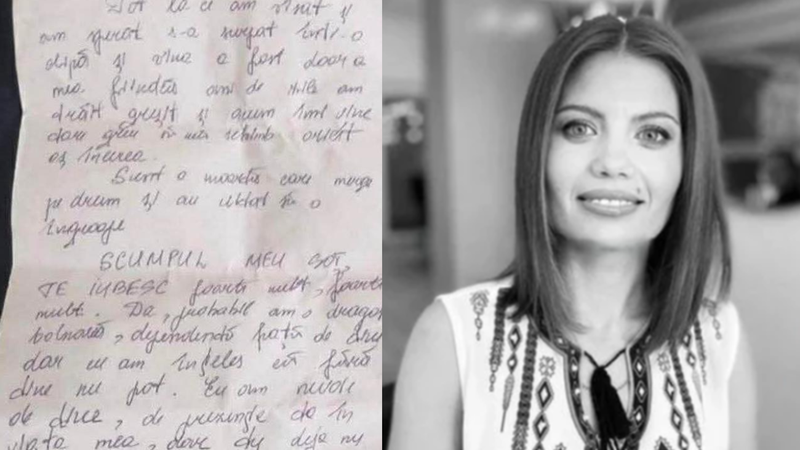 Tot la ce am visat și
am sperat s-a surpat într-o
clipă și vina a fost doar a
mea fiindcă ani de zile am
trăit greșit și acum îmi vine
dare greu să mă schimb oricât
aș încerca.
Sunt o moartă care merge
pe drum și au uitat să o
îngroape
SCUMPUL MEU SOȚ,
TE IUBESC foarte mult, foarte
mult. Da, probabil am o dragos
bolnavă, dependentă față de tine
dar eu am înțeles că fără
tine nu pot. Eu am nevoie
de tine, de prezența ta în
viața mea, doar că deja nu